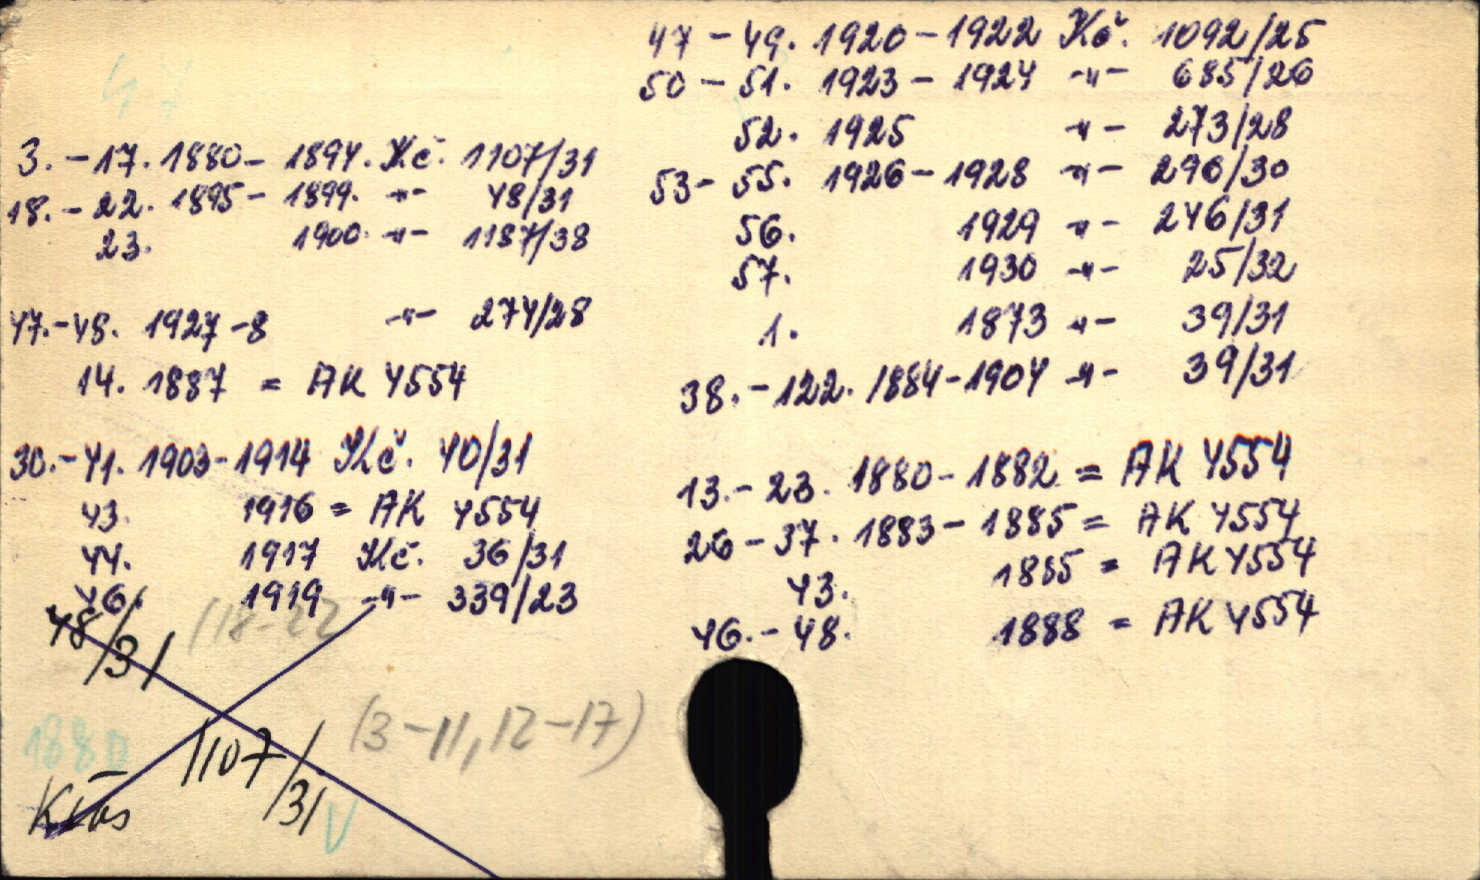 3. - 17. 1880 - 1894. Kč. 1107/31
18. - 22. 1895 - 1899. -"- 48/31
23. 1900. -"- 1187/38
47. - 48. 1927 - 8 -"- 274/28
14. 1887 = AK 4554
30. - 41. 1903 - 1914 Kč. 40/31
43. 1916 = AK 4554
44. 1917 Kč. 36/31
46. 1919 -"- 339/23
48/31 (18-22
1107/31 (3-11, 12-17)
1880
V
47 - 49. 1920 - 1922 Kč. 1092/25
50 - 51. 1923 - 1924 -"- 685/26
52. 1925 -"- 273/28
53 - 55. 1926 - 1928 -"- 296/30
56. 1929 -"- 246/31
57. 1930 -"- 25/32
1. 1873 -"- 39/31
38. - 122. 1884 - 1904 -"- 39/31
13. - 23. 1880 - 1882 = AK 4554
26 - 37. 1883 - 1885 = AK 4554
43. 1885 = AK 4554
46. - 48. 1888 = AK 4554